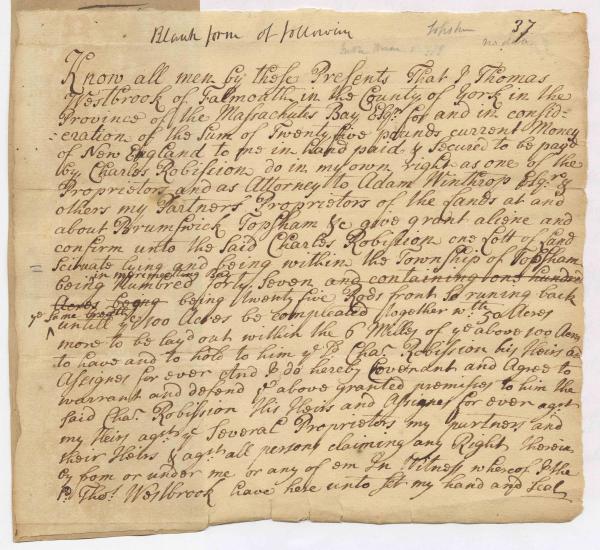 Blank form of following
Topsham
37
no date
Know all men by these Presents That I Thomas
Westbrook of Falmouth in the County of York in the
Province of the Massachutes Bay Esqr. for and in consid-
-eration of the Sum of Twenty five pounds current Money
of New England to me in hand paid & Secured to be payd
by Charles Robission do in my own right as one of the
Proprietors and as Attorney to Adam Winthrop Esqr. &
others my Partners Proprietors of the Lands at and
about Brumswick Topsham &c give grant aliene and
confirm unto the Said Charles Robission one Lott of Land
Scituate lying and being within the Township of Topsham
being Numbred forty Seven and containing one hundred
Acres being being twenty five Rods front So runing back
ye Same breadth
untill ye 100 Acres be compleated together wt. 50 Acres
more to be lay'd out within the 6 Miles of ye above 100 Acres
to have and to hold to him ye sd. Chas. Robission his Heirs and
Assignes for ever And I do hereby Covenant and Agree to
warrant and defend ye above granted premises to him the
Said Chas. Robission His Heirs and Assignes for ever agst
my Heirs agst ye Several Proprietors my partners and
their Heirs & agst all persons claiming any Right therein
by from or under me or any of em In Witness whereof I the
sd. Thos. Westbrook have here unto Set my hand and Seal